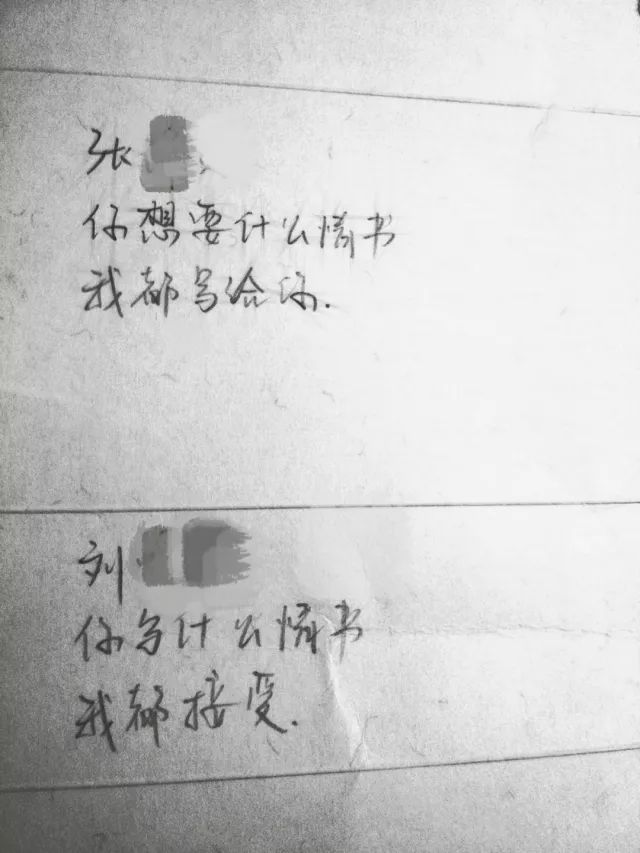 张
你想要什么情书
我都写给你.
刘
你写什么情书
我都接受.